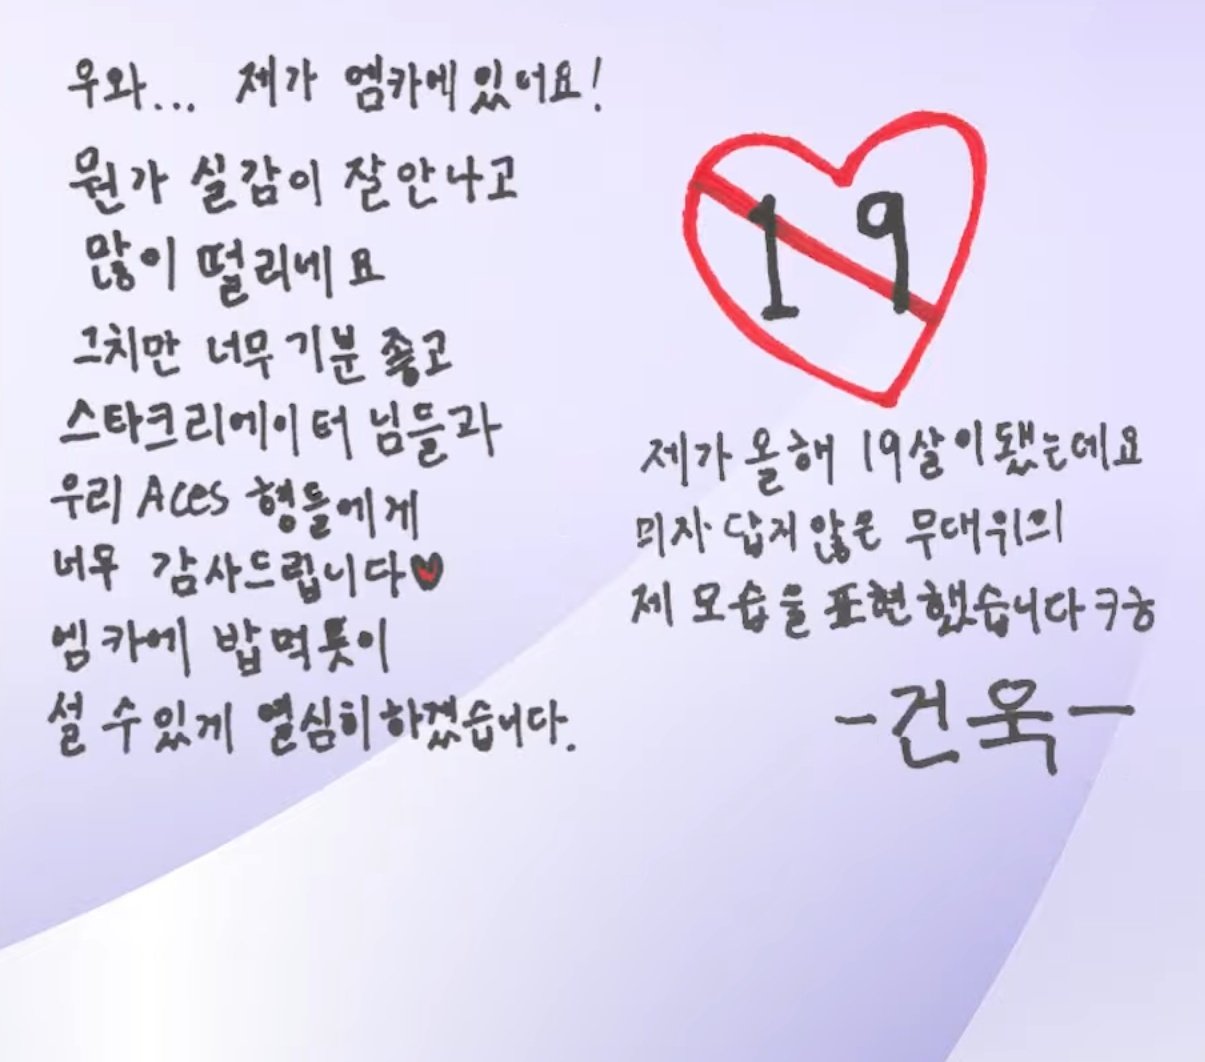 우와... 제가 엠카에 있어요!
뭔가 실감이 잘 안나고
많이 떨리네요
그치만 너무 기분 좋고
스타크리에이터 님들과
우리 Aces 형들에게
너무 감사드립니다♥
엠카에 밥먹듯이
설 수 있게 열심히 하겠습니다.
19
제가 올해 19살이 됐는데요
미자 답지 않은 무대위의
제 모습을 표현했습니다ㅋㅎ
-건욱-